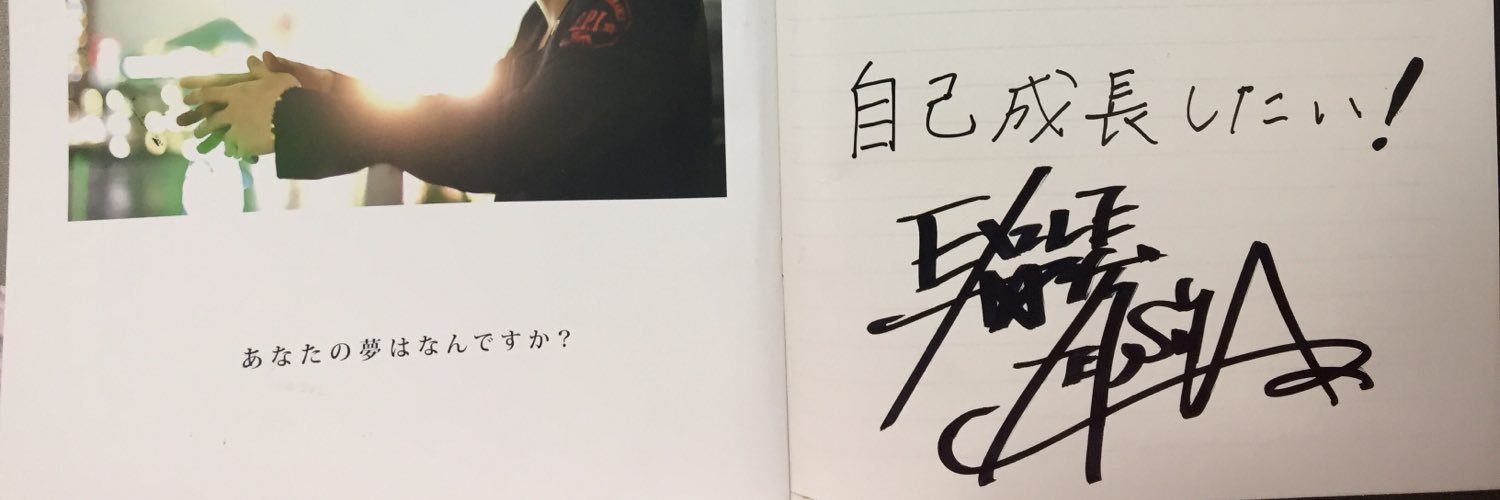 あなたの夢はなんですか?
自己成長したい!
EXILE
TETSUYA